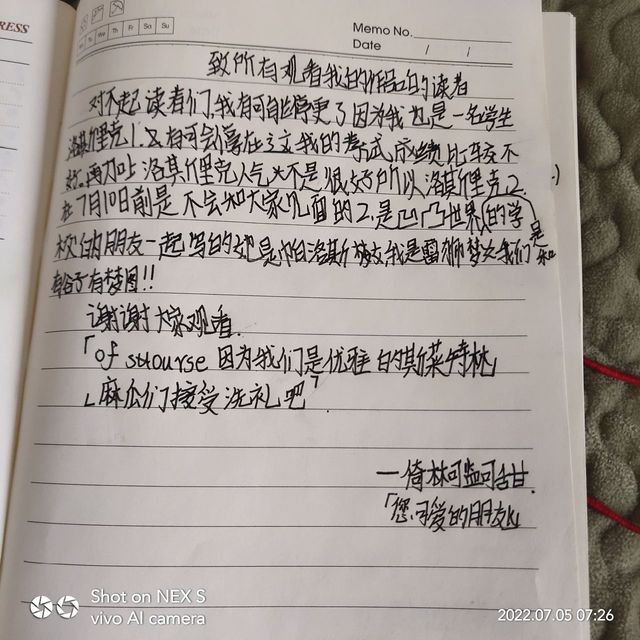 RESS
Mo Tu We Th Fr Sa Su
Memo No.
Date / /
致所有观看我的作品的读者
对不起读者们,我有可能停更了因为我也是一名学生
洛其斤里克1.又有可会停在这文我的考试成绩比较不
好。再加上洛其斤里克人气火不是很好所以洛其斤里克2.
在7月10日前是不会和大家见面的2.是凹凸世界(的学
校)的朋友一起写的她是帕洛斯 我是雷狮梦女我们是和
有梦图!!
谢谢大家观看.
「of stourse 因为我们是优雅的斯莱特林」
「麻瓜们接受洗礼吧」
—倚林可 可甜.
「您可爱的朋友」
Shot on NEX S
vivo AI camera
2022.07.05 07:26